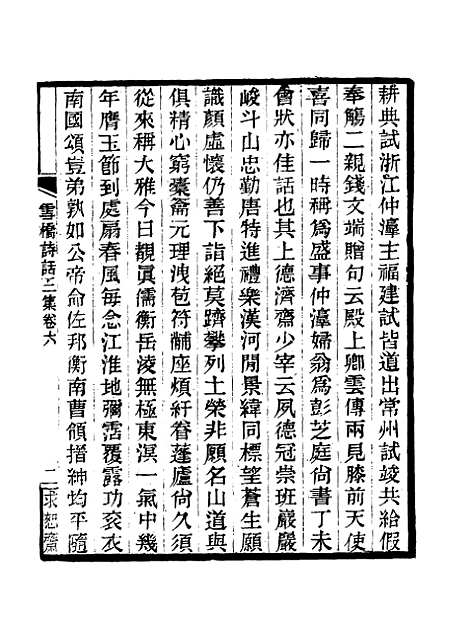 耕典試浙江仲瀀主福建試皆道出常州試竣共給假
奉觴二親錢文端贈句云殿上卿雲傳兩見膝前天使
喜同歸一時稱爲盛事仲瀀婦翁爲彭芝庭尙書丁未
會狀亦佳話也其上德濟齋少宰云夙德冠崇班巖巖
峻斗山忠勤唐特進禮樂漢河閒景緯同標望蒼生願
識顏虛懷仍善下詣絕莫躋攀列土榮非願名山道與
俱精心窮橐籥元理洩苞符黼座煩紆眷蓬廬尙久須
從來稱大雅今日覩眞儒衡岳凌無極東溟一氣中幾
年膺玉節到處扇春風每念江淮地彌霑覆露功袞衣
南國頌豈弟孰如公帝命佐邦衡南曹領搢紳均平隨
雪橋詩話三集卷六
二
求恕齋